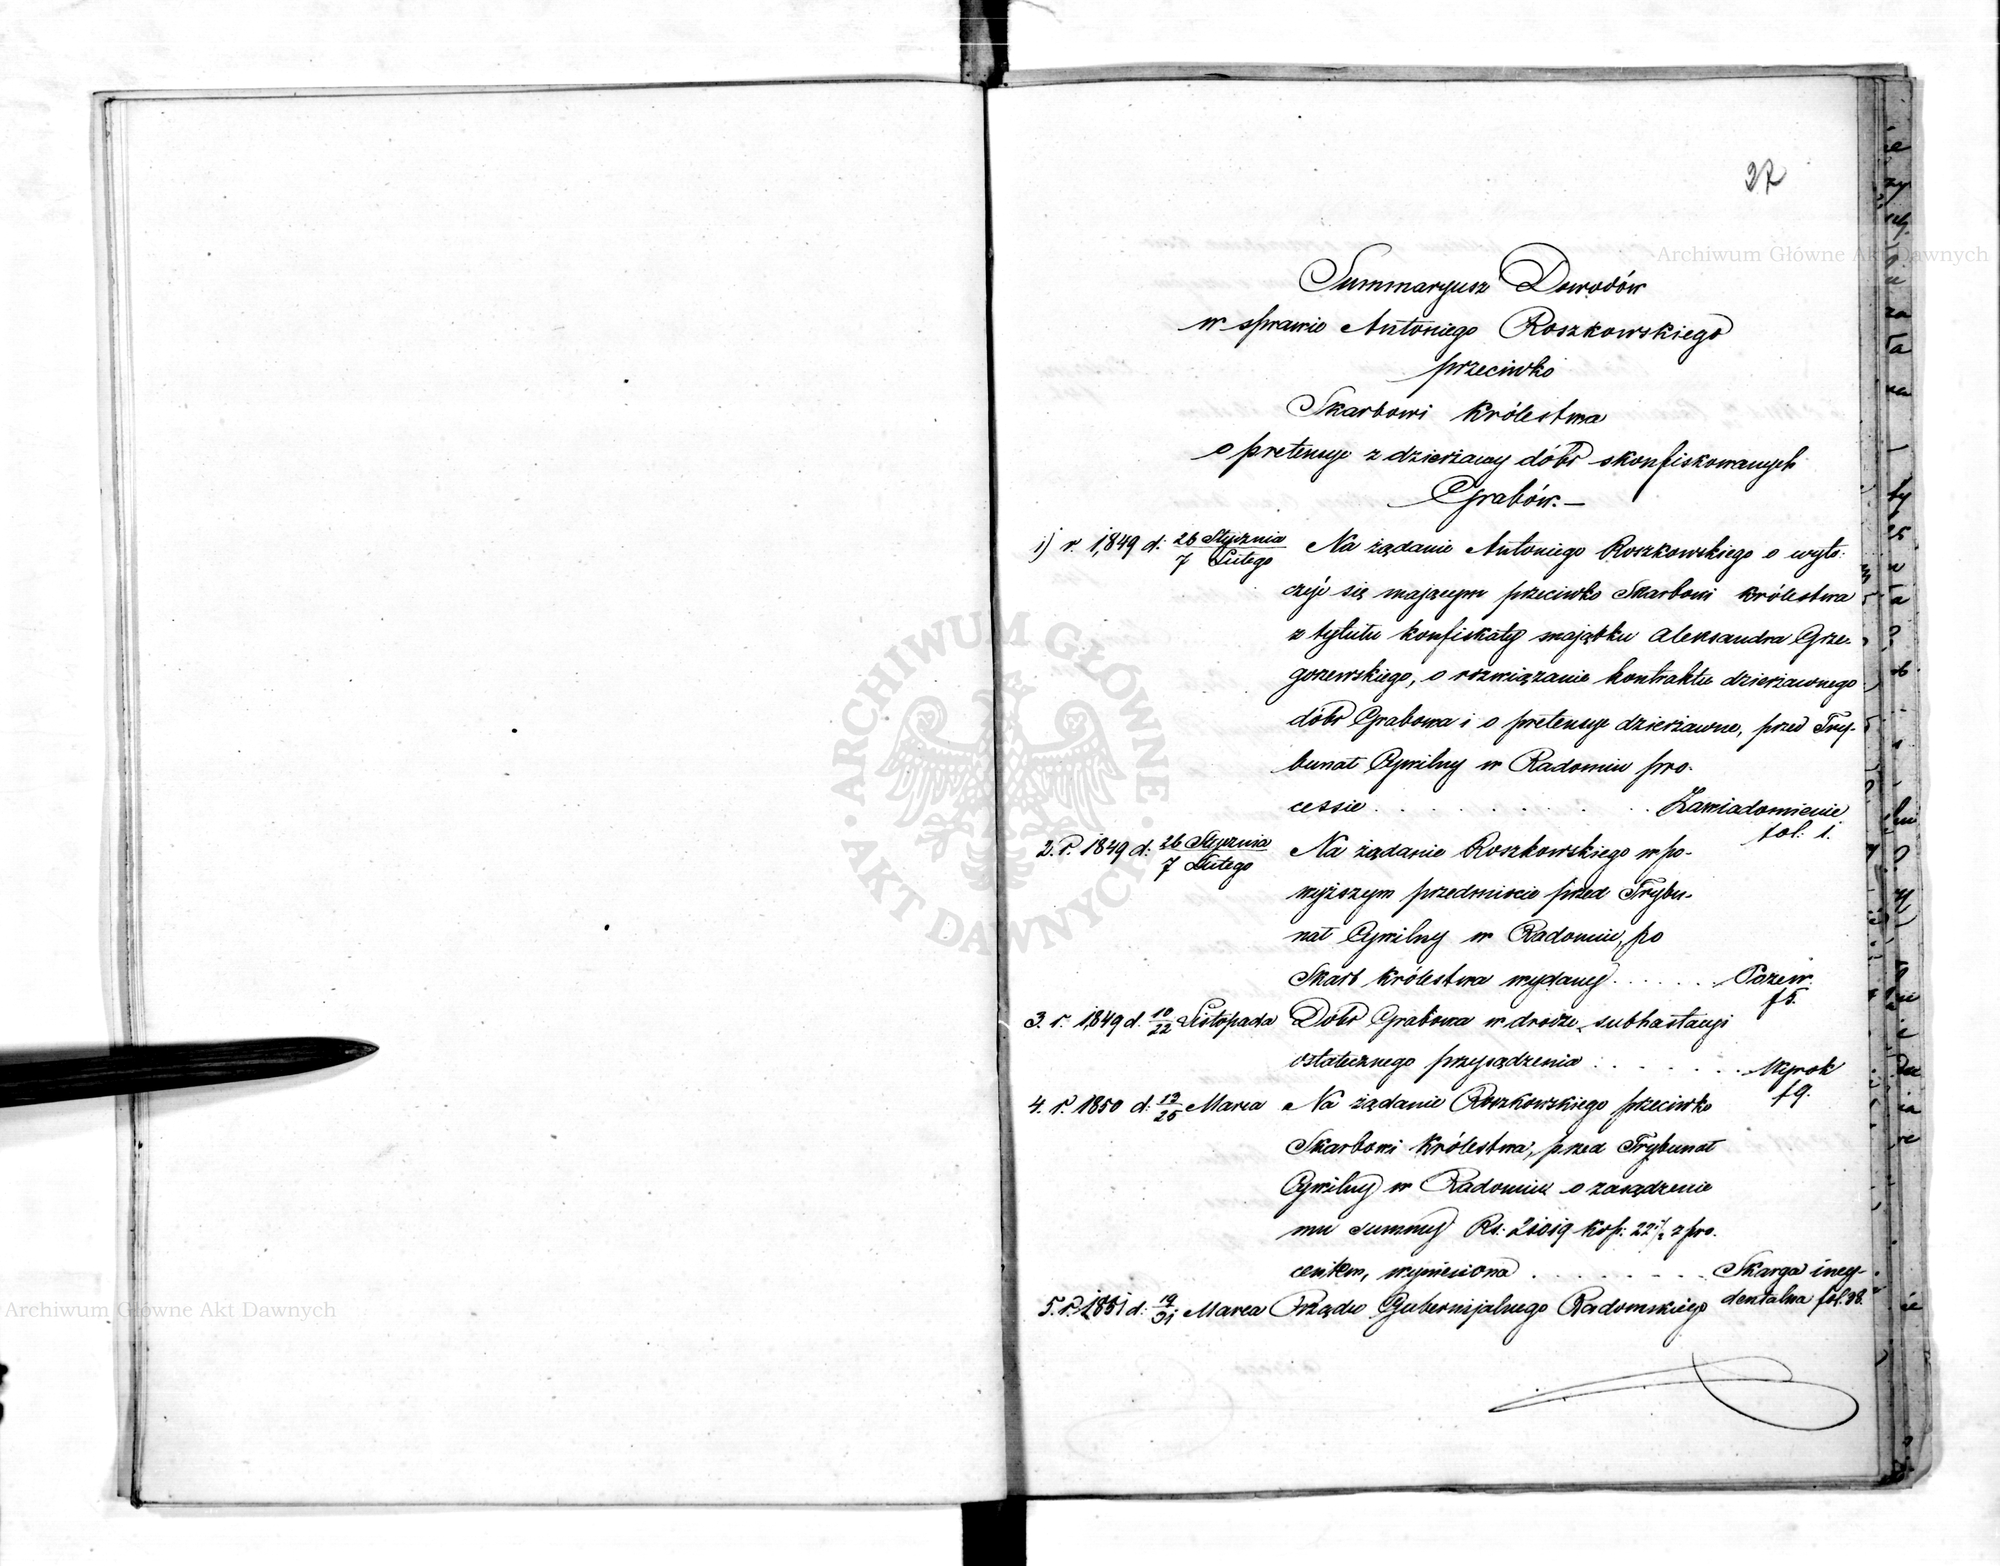 27
Summaryusz Dowodów
w sprawie Antoniego Roszkowskiego
przeciwko
Skarbowi Królestwa
o pretensye z dzierżawy dóbr skonfiskowanych
Grabów. —
1) r. 1849 d: 26 Stycznia / 7 Lutego Na żądanie Antoniego Roszkowskiego o wyto:
czyć się mającym przeciwko Skarbowi Królestwa
z tytułu konfiskaty majątku Aleksandra Grze-
gorzewskiego, o rozwiązanie kontraktu dzierżawnego
dóbr Grabowa i o pretensye dzierżawne, przed Try-
bunał Cywilny w Radomiu pro-
cessie . . . . . . . . Zawiadomienie
fol: 1.
2. r. 1849 d: 26 Stycznia / 7 Lutego Na żądanie Roszkowskiego w po-
wyższym przedmiocie przed Trybu-
nał Cywilny w Radomiu, po
Skarb Królestwa wydany . . . . . . Pozew.
f 5.
3. r. 1849 d. 10/22 Listopada Dóbr Grabowa w drodze subhastacyi
ostatecznego przysądzenia . . . . . . Wyrok
f 9.
4. r. 1850 d: 13/25 Marca Na żądanie Roszkowskiego przeciwko
Skarbowi Królestwa, przed Trybunał
Cywilny w Radomiu o zasądzenie
mu summy Rs: 21019 kop: 22 1/2 z pro-
centem, wyniesiona . . . . . . . Skarga incy-
dentalna fol. 38.
5. r. 1851 d: 19/31 Marca Rządu Gubernijalnego Radomskiego
Archiwum Główne Akt Dawnych
Archiwum Główne Akt Dawnych
ARCHIWUM GŁÓWNE AKT DAWNYCH